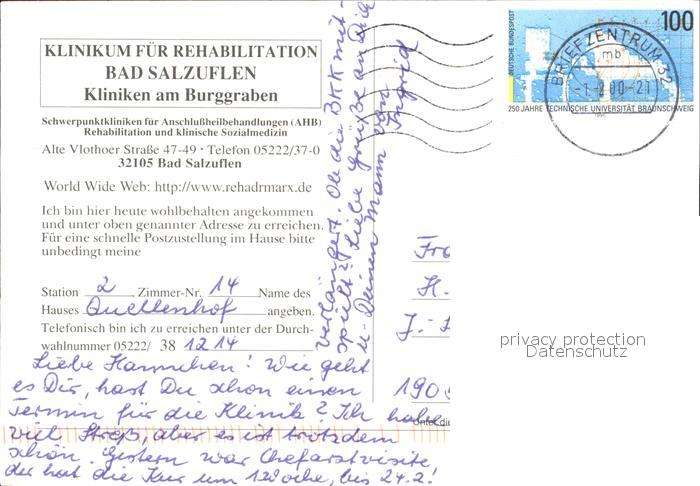 KLINIKUM FÜR REHABILITATION
BAD SALZUFLEN
Kliniken am Burggraben
Schwerpunktkliniken für Anschlußheilbehandlungen (AHB)
Rehabilitation und klinische Sozialmedizin
Alte Vlothoer Straße 47-49 · Telefon 05222/37-0
32105 Bad Salzuflen
World Wide Web: http://www.rehadrmarx.de
Ich bin hier heute wohlbehalten angekommen
und unter oben genannter Adresse zu erreichen.
Für eine schnelle Postzustellung im Hause bitte
unbedingt meine
Station 2 Zimmer-Nr. 14 Name des
Hauses Quellenhof angeben.
Telefonisch bin ich zu erreichen unter der Durch-
wahlnummer 05222/ 38 1214
Liebe Hannchen! Wie geht
es Dir, hast Du schon einen
Termin für die Klinik? Ich habe
viel Streß, aber es ist trotzdem
schön. Gestern war Chefarztvisite
der hat die Kur um 1 Woche, bis 24.2!
verlängert. Ob die BKK mit-
spielt? Liebe Grüße an Dich
u. Deinen Mann von
Ingrid
DEUTSCHE BUNDESPOST
100
250 JAHRE TECHNISCHE UNIVERSITÄT BRAUNSCHWEIG
1995
BRIEFZENTRUM 32
mb
-21
Fr
H.
J.-
190
privacy protection
Datenschutz